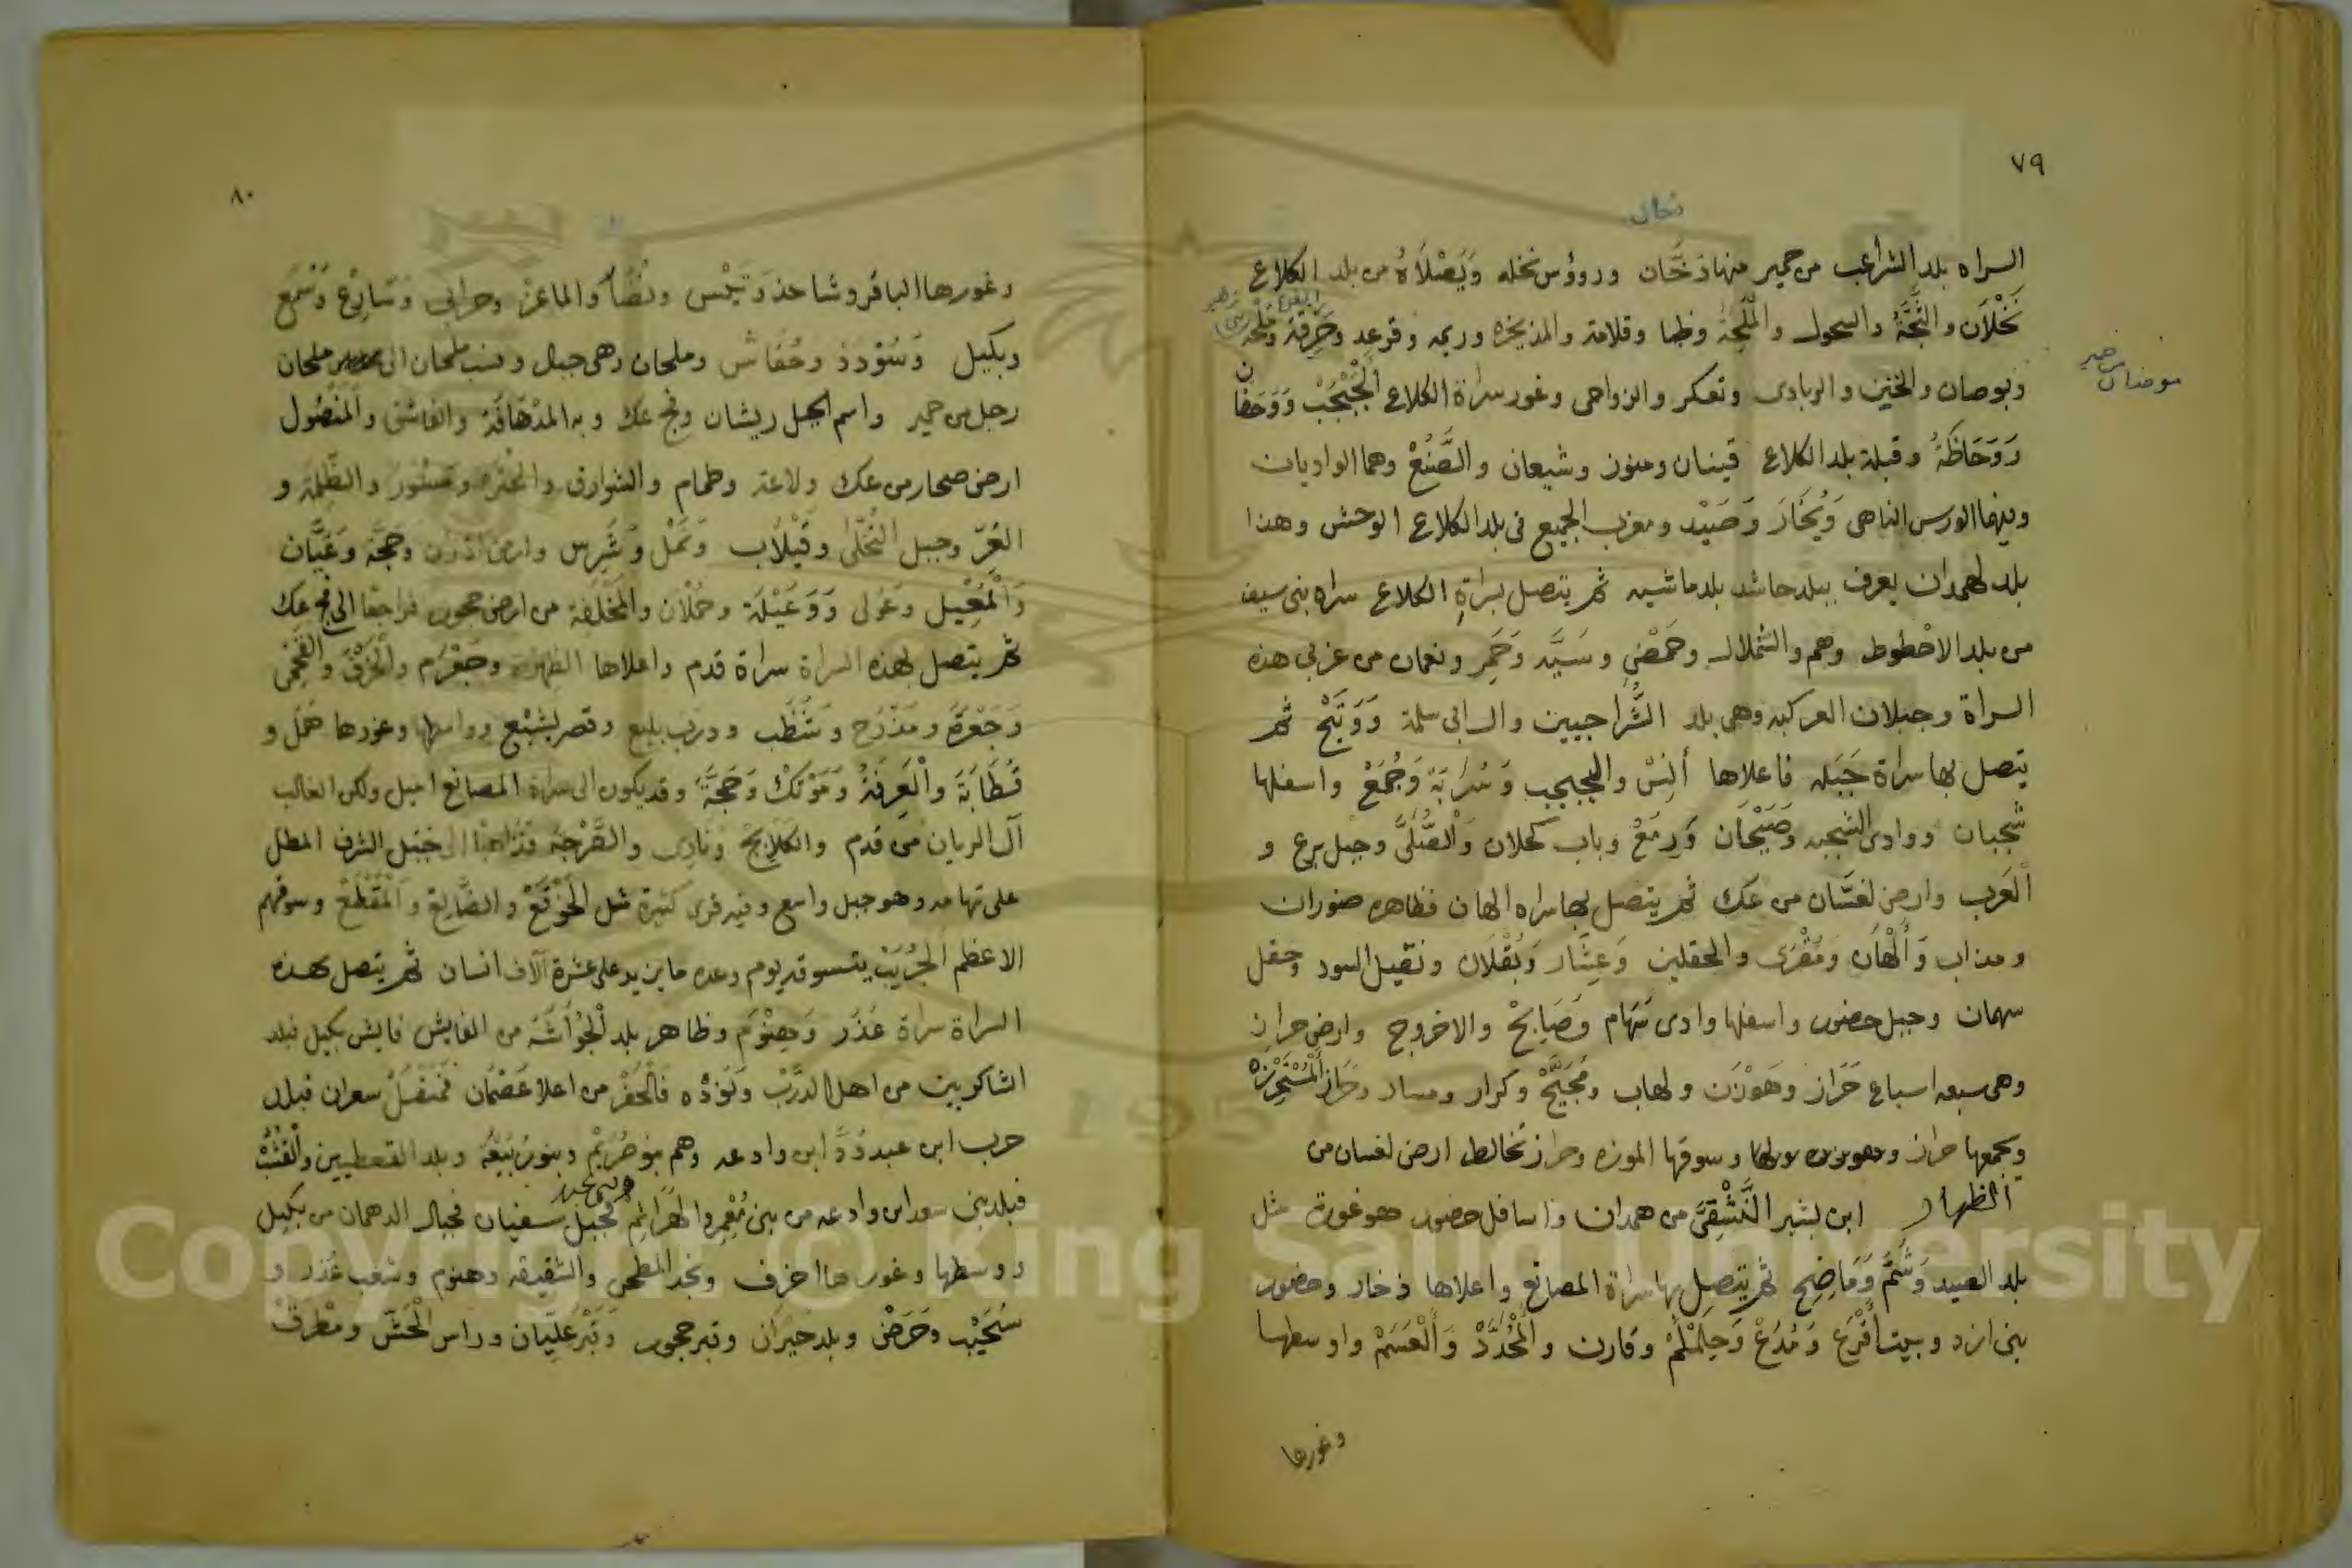 ٧٩
نخال
السراه بلد الشراعب من حمير منها ذخان وروؤس نخله ويصلاة من بلد الكلاع
نخلان والثجة والسحول والملحة وظبا وقلامة والمذيخره وريمه وقرعد وحرقة وملحة
وبوصان والخنين والربادى وتعكر والزواحى وغور سراة الكلاع الجبجب ووحفان
ووحاظة وقبلة بلد الكلاع قينان ومنوز وشيعان والصنع وهما الواديان
وفيهما الورس الناهى ويخار وصيد ومغرب الجميع فى بلد الكلاع الوحش وهذا
بلد لهمدان يعرف ببلد حاشد بلد ماشيه ثم يتصل بسراة الكلاع سراه بنى سيف
من بلد الاخطوط وهم والشملال وحمض وسيد وحمر ونعمان من غربى هذه
السراة وجبلان العركبه وهى بلد الشراحيين وال ابى سلمة ووتيح ثم
يتصل بها سراة جبله فاعلاها أنس والجبجب وسرابة وجمع واسفلها
شجبان ووادى الشجبه وصيحان ورمع وباب كحلان والصلى وجبل برع و
العرب وارض لعسان من عك ثم يتصل بها سراه الهان فظاهره ضوران
ومذاب وألهان ومقرى والحقلين وعشار وبقلان ونقيل السود وحقل
سهمان وجبل حضور واسفلها وادى سهام وصابح والاخروج وارض حراز
وهى سبعه اسباع حراز وهوزن ولهاب ومجيح وكرار ومسار وحراز المستحرزه
ويجمعها حراز وسوقها الموزه وحراز تخالط ارض لعسان من
الظهار ابن بشير النشقى من همدان واسافل حضور هو غورة مثل
بلد الصيد وشم وماضح ثم يتصل بها سراة المصانع واعلاها ذخار وحضور
بنى ازد وبيت أقرع ومدع وحلملم وقارن والمحدد والعسم واوسطها
وغورها
٨٠
وغورها الباقر وشاحذ وتيس ونضار والماعز وحرابى وسارع وسمع
وبكيل وسودد وحفاش وملحان وهى جبال ونسب ملحان الى ملحان
رجل من حمير واسم الجبل ريشان وفج عك وبه المدهافة والفاشق والمنصول
ارض صحار من عك ولاعة وطمام والشوارق والظلمة و
العر وجبل التخلى وقيلاب ونمل وشرس وارض وحجة وعيان
والمعيل وعولى ووعيلة وحملان والمخلفة من ارض حجور فراجعا الى فج عك
ثم يتصل بهذه السراة سراة قدم واعلاها وجعرم والحرف و
وجعرة ومذرح وشظب ودرب بليع وقصر يشيع وواسطها وغورها همل و
قطابة والعرفة وموتك وحجة وقد يكون الى سراة المصانع اميل ولكن الغالب
آل الريان من قدم والكلابح ونادى والصرحة الى جبل الشرف المطل
على تهامه وهو جبل واسع وفيه قرى كثيرة مثل الحوقع والضالع والمقطع وسوقهم
الاعظم الجريب يتسوقه يوم وعده ما يزيد على عشرة آلاف انسان ثم يتصل بهذه
السراة سراة عذر وهنوم وظاهر بلد الجواشة من الفايش فايش بكيل فبلد
الشاكريين من اهل الدرب ونوده فالحفر من اعلا عضمان سعران فبلد
حرب ابن عبد ود ابن وادعه وهم بنو حريم وبنو ربيعة وبلد القعطيين
فبلد بنى سعد ابن وادعه من بنى معمر والهراثم فجبل سفيان فجبال الدهمان من بكيل
ووسطها وغورها اخرف ونجد المطحى والشقيقه وهنوم وشعب عذر و
سحيب وحرض وبلد حيران وقبر حجور وقبر عليان وراس الحش ومطرق
Copyright © King Saud University
1957